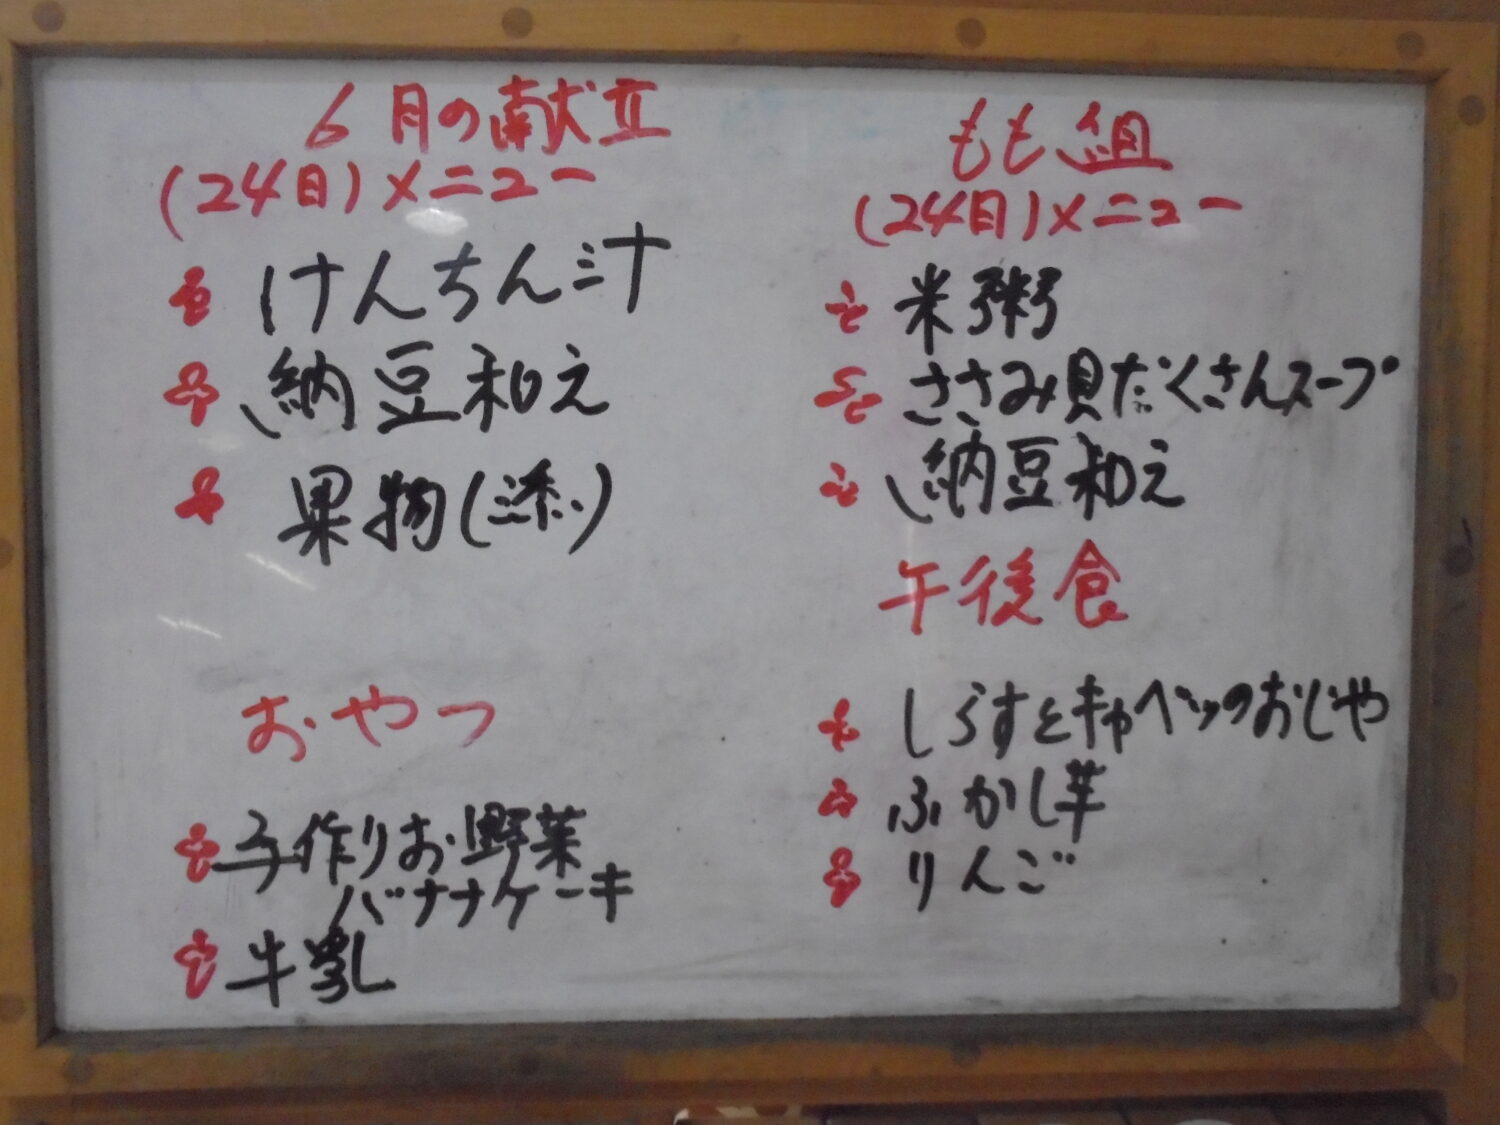 6月の献立
(24日)メニュー
けんちん汁
納豆和え
果物(添)
おやつ
手作りお野菜
バナナケーキ
牛乳
もも組
(24日)メニュー
米粥
ささみ具たくさんスープ
納豆和え
午後食
しらすとキャベツのおじや
ふかし芋
りんご